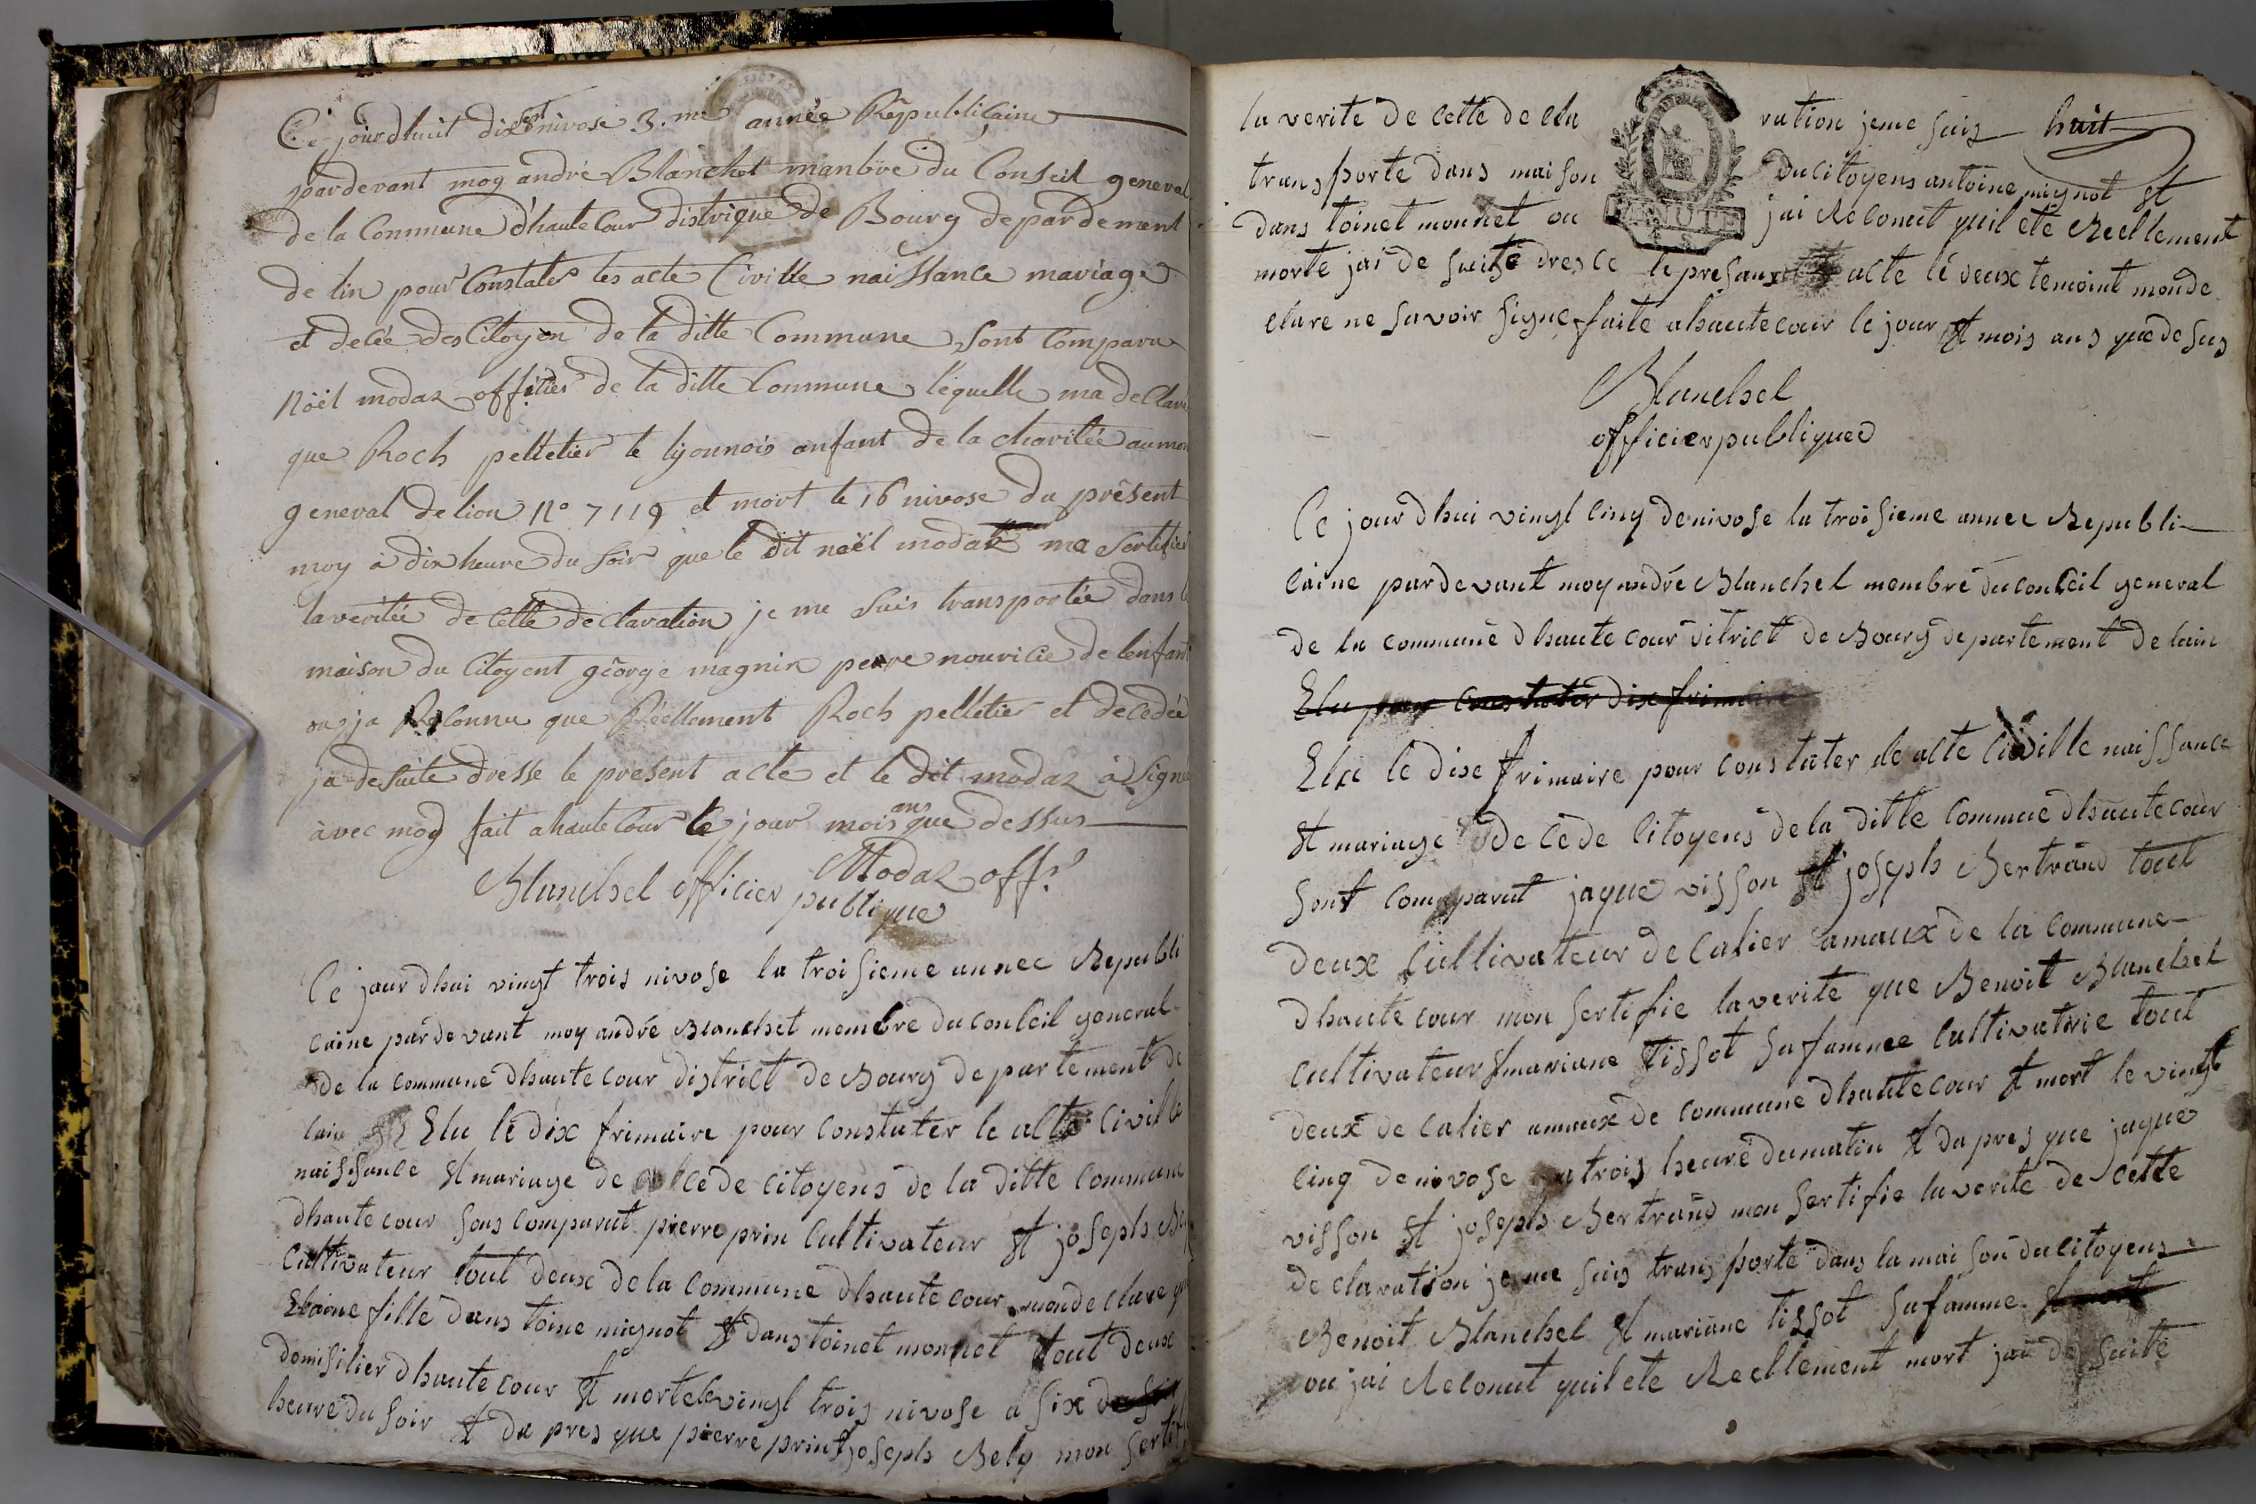 Ce jourdhuit dix sept nivose 3.me année Républiçaine
pardevant moy andré Blanchet manbre du Conseil general
de la Commune d'hautecour distrique de Bourg depardement
de lin pour Constater les acte Civille naissance mariage
et decée des Citoyen de la ditte Commune Sont Comparu
Nöel modaz offitier de la ditte Commune léquelle ma declaré
que Roch pelletier le lyonnois anfant de la charitée aumon
general de lion No 7119 et mort le 16 nivose du présent
moy à dix heure du soir que le dit noël modaz ma sertifiée
la veritée de Cette declaration je me suis transportée dans la
maison du Citoyent géorge magnin perre nouricie de lenfant
ou ja Reconnu que Réellement Roch pelletier et decedée
ja desuite dresse le present acte et le dit modaz à signé
àvec moy fait ahautecour le jour mois ans que dessus
Modaz off.r
Blanchet officier publique
Ce jour dhui vingt trois nivose la troisieme annee Republi
caine pardevant moy andré Blanchet membre du conceil general
de la commune dhautecour district de Bourg departement de
lain Elu le dix frimaire pour constater le acte civille
naissance et mariage de cede citoyens de la ditte commune
dhautecour sons comparut pierre prin cultivateur et joseph Be
cultivateur tout deux de la commune dhautecour mon declare q
fille dans toine mignot et dans toinet monnet tout deux
domisilier dhautecour et morte le vingt trois nivose a six du soir
heure du soir et du pres que pierre prin et joseph Bely mon sertif
la verite de cette decla ration jeme suis huit
transporte dans maison du citoyens antoine mignot et
dans toinet monnet ou jai Reconut quil été Reellement
morte jai de suite dresce le presant acte lé deux temoint monde
clare ne savoir signe faite ahautecour le jour et mois ans que desus
Blanchet
officier publique
Ce jour dhui vingt cinq de nivose la troisieme annee Republi
caine pardevant moy andré Blanchet membre du conceil general
de la commune dhautecour ditrict de Bourg departement de lain
Elu pour constater dix frimaire
Elu le dix frimaire pour constater le acte civille naissance
et mariage de cede citoyens de la ditte commune dhautecour
sont comparut jaque visson et joseph Bertrand tout
deux cultivateur de calier amaux de la commune
dhautecour mon sertifie la verite que Benoit Blanchet
cultivateur et mariane tissot sa famme cultivatrie tout
deux de calier amaux de commune dhautecour et mort le vingt
cinq de nivose a trois heure du matin et du pres que jaque
visson et joseph Bertrand mon sertifie la verite de cette
declaration je me suis transporte dans la maison du citoyens
Benoit Blanchet et mariane tissot sa famme et mort
ou jai Reconut quil ete Reellement mort jai de suite